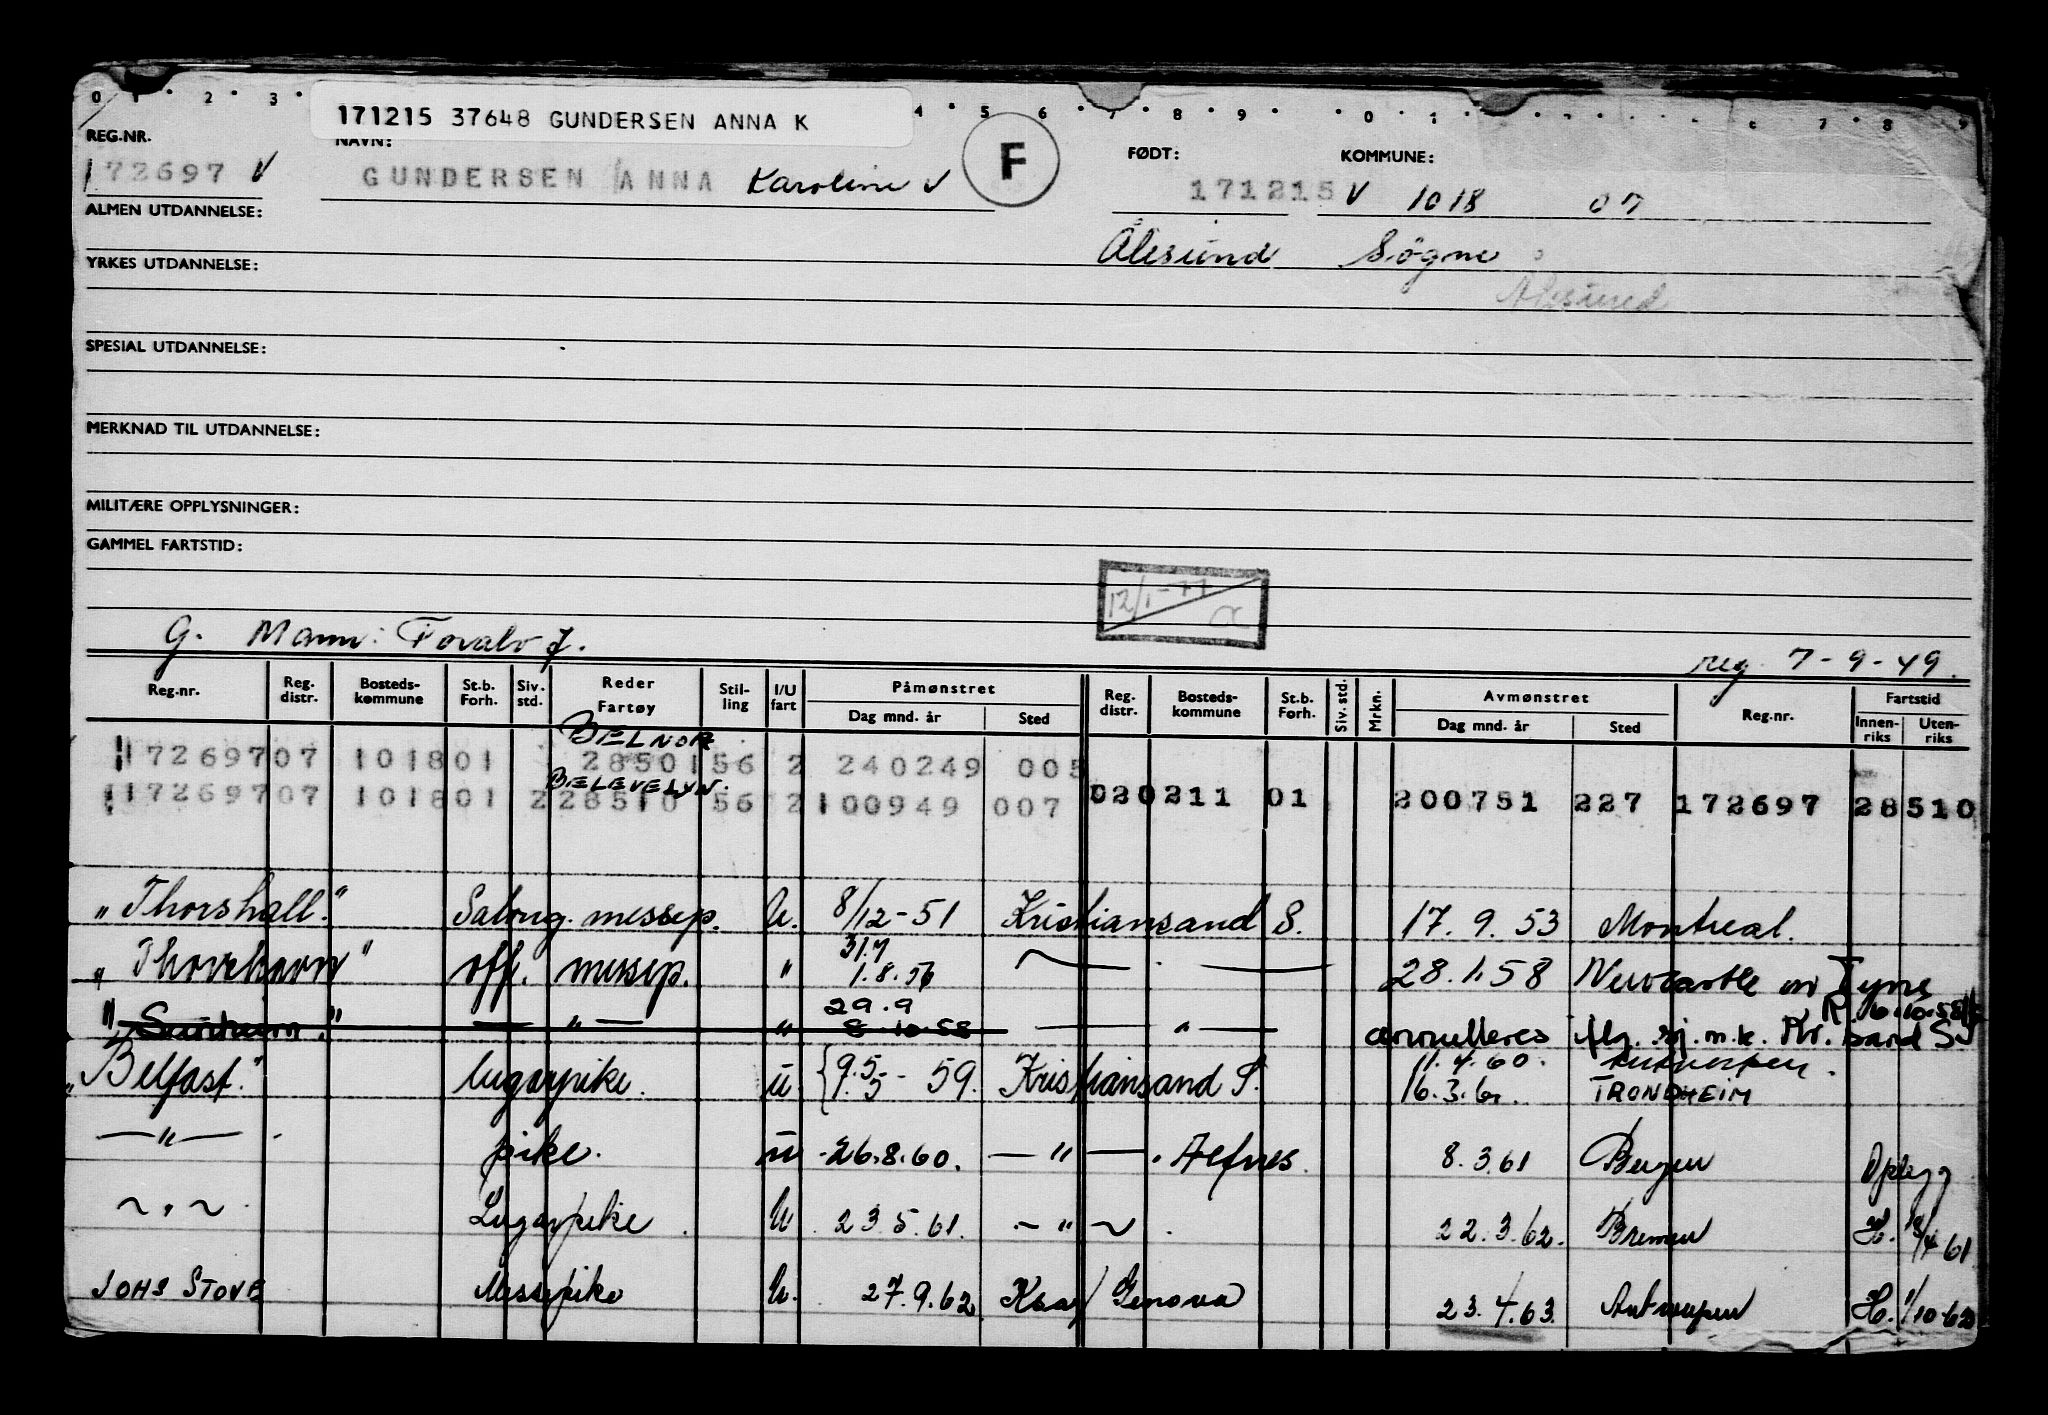 0 1 2 3 4 5 6 7 8 9 0 1 7 8 9
171215 37648 GUNDERSEN ANNA K
REG.NR. NAVN: F FØDT: KOMMUNE:
172697 V GUNDERSEN ANNA Karoline V 171215 V 1018 07
ALMEN UTDANNELSE:
Ålesund Søgne
YRKES UTDANNELSE:
Ålesund
SPESIAL UTDANNELSE:
MERKNAD TIL UTDANNELSE:
MILITÆRE OPPLYSNINGER:
GAMMEL FARTSTID:
12/1-77
G. Mann: Toralv J.
reg. 7-9-49.
Reg.nr. Reg. distr. Bosteds-kommune St.b. Forh. Siv. std. Reder Fartøy Stil-ling I/U fart Påmønstret Dag mnd. år Sted Reg. distr. Bosteds-kommune St.b. Forh. Siv. std. Mrkn. Avmønstret Dag mnd. år Sted Reg.nr. Fartstid Innen-riks Uten-riks
BELNOR
172697 07 1018 01 28501 56 2 240249 005
BELEVELYN.
172697 07 1018 01 2 28510 56 2 100949 007 020211 01 200751 227 172697 28510
"Thorshall." Salong. messep. U. 8/12-51 Kristiansand S. 17.9.53 Montreal.
31.7
"Thorshavn" off. messep. " 1.8.56 — . — 28.1.58 Newcastle on Tyne
29.9 R. 16.10.58
" " — " — " 8-10-58 — " — annulleres flg. rj. m.k. Kr.sand S
11.4.60. Antwerpen.
"Belfast." lugarpike. u. 9.5.-59. Kristiansand S. 16.3.61. TRONDHEIM
— " — . pike. u 26.8.60. — " — . Alfnes. 8.3.61 Bergen Opbygg
~ " ~ Lugarpike. U 23.5.61. — " ~ . 22.3.62. Bremen H. 18/4 61
JOHS STOVE Messepike U. 27.9.62 Krs/ Genova 23.4.63. Antwerpen H. 1/10-62